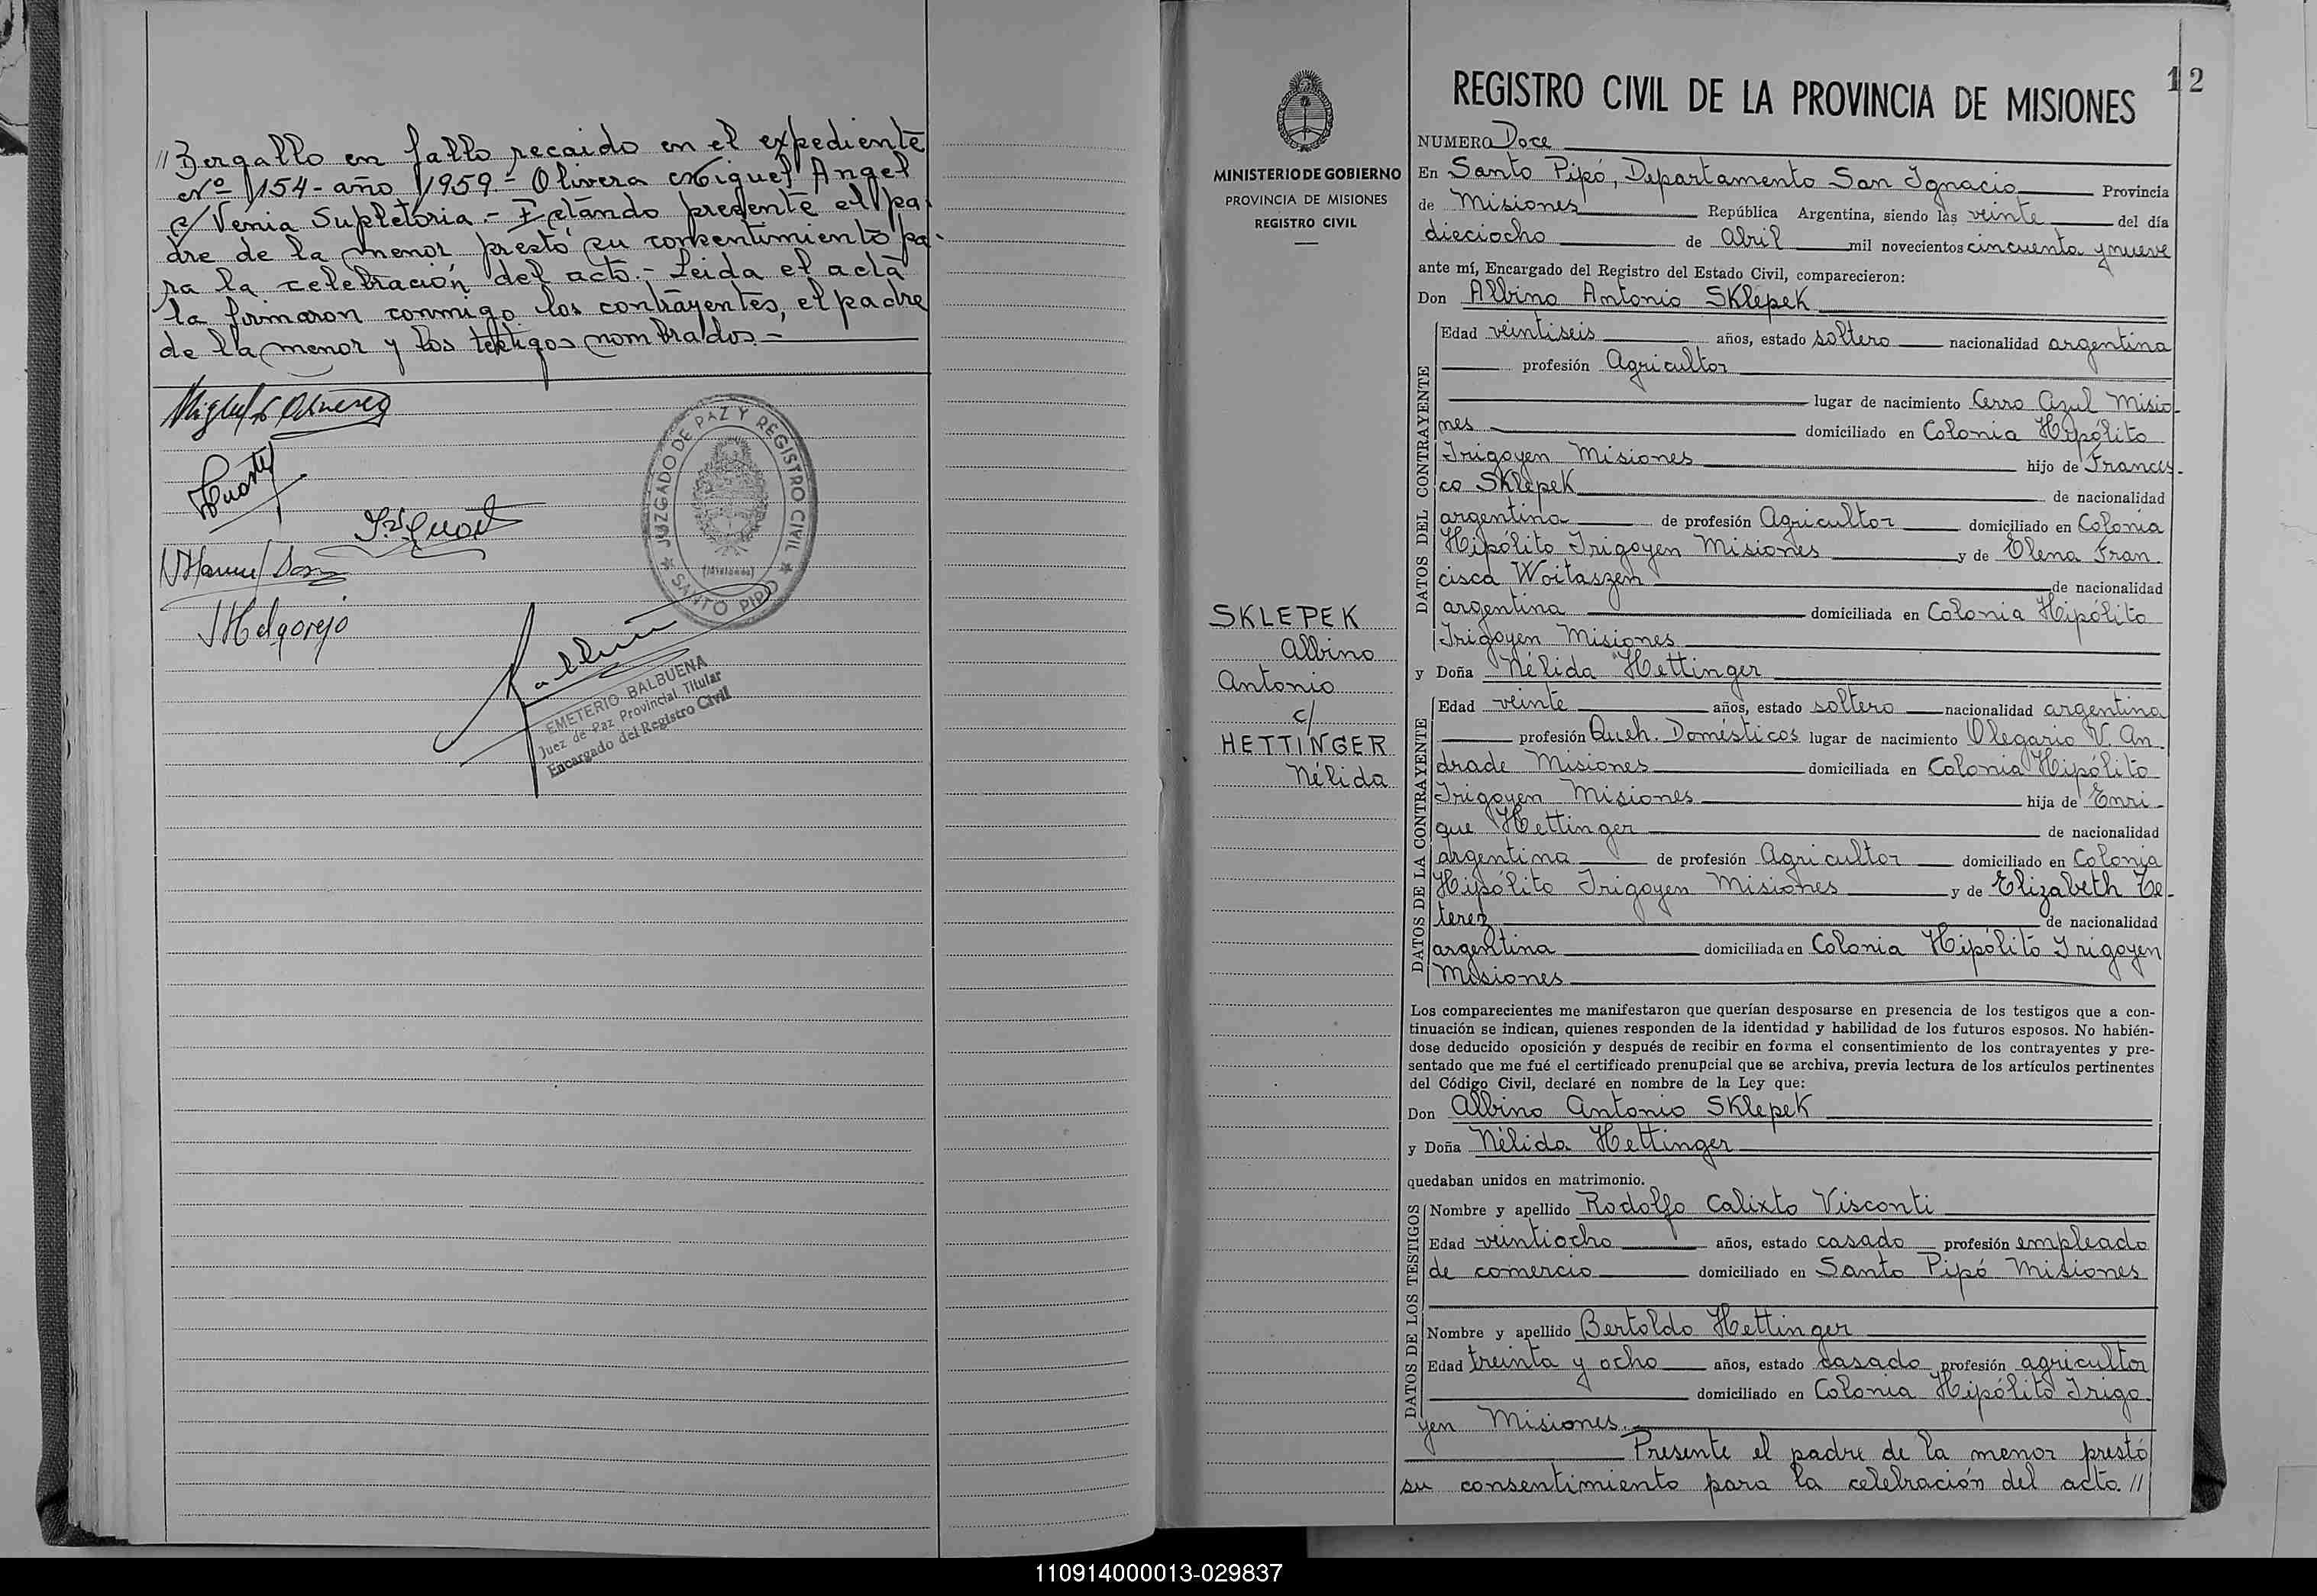 // Bergallo en fallo recaido en el expediente
Nº 1154- año 1959 - Olivera Miguel Angel
s/ Venia Supletoria.- Estando presente el pa-
dre de la menor prestó su consentimiento pa-
ra la celebración del acto.- Leida el acta
la firmaron conmigo los contrayentes, el padre
de la menor y los testigos nombrados.-
JUZGADO DE PAZ Y REGISTRO CIVIL
(Misiones)
SANTO PIPÓ
EMETERIO BALBUENA
Juez de Paz Provincial Titular
Encargado del Registro Civil
12
REGISTRO CIVIL DE LA PROVINCIA DE MISIONES
MINISTERIO DE GOBIERNO
PROVINCIA DE MISIONES
REGISTRO CIVIL
SKLEPEK
Albino
Antonio
c/
HETTINGER
Nélida
NUMERO Doce
En Santo Pipó, Departamento San Ignacio Provincia
de Misiones República Argentina, siendo las veinte del día
dieciocho de Abril mil novecientos cincuenta y nueve
ante mí, Encargado del Registro del Estado Civil, comparecieron:
Don Albino Antonio Sklepek
DATOS DEL CONTRAYENTE
Edad veintiseis años, estado soltero nacionalidad argentina
profesión Agricultor
lugar de nacimiento Cerro Azul Misio-
nes domiciliado en Colonia Hipólito
Irigoyen Misiones hijo de Francis-
co Sklepek de nacionalidad
argentina de profesión Agricultor domiciliado en Colonia
Hipólito Irigoyen Misiones y de Elena Fran-
cisca Woitaszen de nacionalidad
argentina domiciliada en Colonia Hipólito
Irigoyen Misiones
y Doña Nélida Hettinger
DATOS DE LA CONTRAYENTE
Edad veinte años, estado soltero nacionalidad argentina
profesión Queh. Domésticos lugar de nacimiento Olegario V. An-
drade Misiones domiciliada en Colonia Hipólito
Irigoyen Misiones hija de Enri-
que Hettinger de nacionalidad
argentina de profesión Agricultor domiciliado en Colonia
Hipólito Irigoyen Misiones y de Elizabeth
de nacionalidad
argentina domiciliada en Colonia Hipólito Irigoyen
Misiones
Los comparecientes me manifestaron que querían desposarse en presencia de los testigos que a con-
tinuación se indican, quienes responden de la identidad y habilidad de los futuros esposos. No habién-
dose deducido oposición y después de recibir en forma el consentimiento de los contrayentes y pre-
sentado que me fué el certificado prenupcial que se archiva, previa lectura de los artículos pertinentes
del Código Civil, declaré en nombre de la Ley que:
Don Albino Antonio Sklepek
y Doña Nélida Hettinger
quedaban unidos en matrimonio.
DATOS DE LOS TESTIGOS
Nombre y apellido Rodolfo Calixto Visconti
Edad veintiocho años, estado casado profesión empleado
de comercio domiciliado en Santo Pipó Misiones
Nombre y apellido Bertoldo Hettinger
Edad treinta y ocho años, estado casado profesión agricultor
domiciliado en Colonia Hipólito Irigo-
yen Misiones.
Presente el padre de la menor prestó
su consentimiento para la celebración del acto. //
110914000013-029837